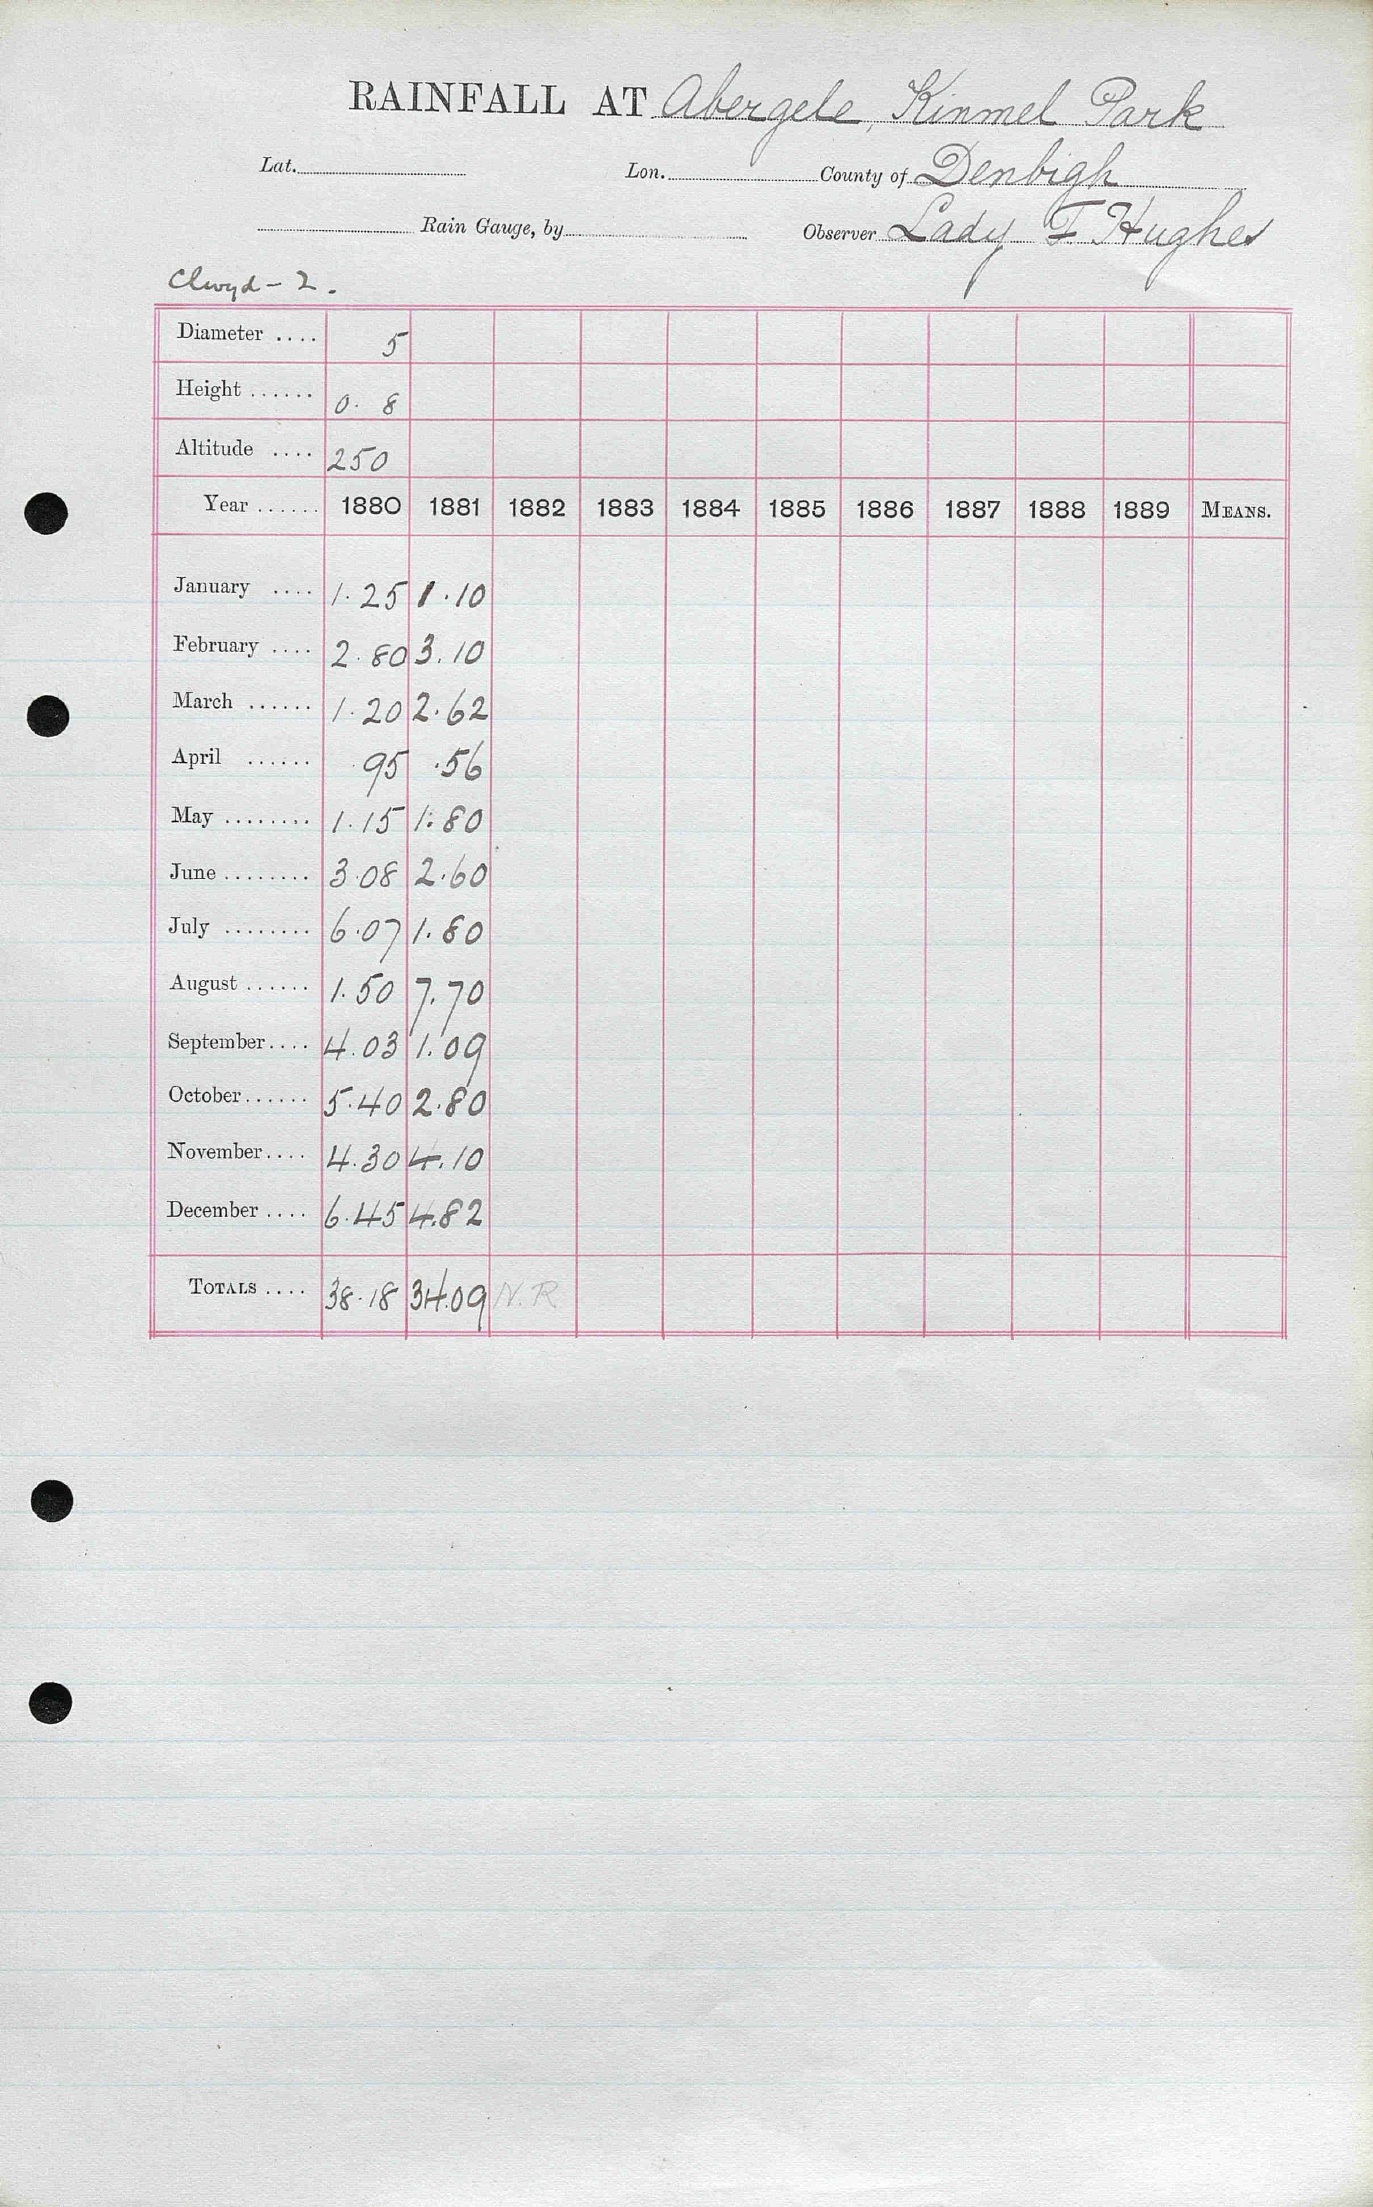 RAINFALL AT Abergele, Kinmel Park
Lat. Lon. County of Denbigh
Rain Gauge, by Observer Lady F. Hughes
Clwyd - 2.
Diameter .... 5
Height ...... 0. 8
Altitude .... 250
Year ...... 1880 1881 1882 1883 1884 1885 1886 1887 1888 1889 MEANS.
January .... 1.25 1.10
February .... 2.80 3.10
March ...... 1.20 2.62
April ...... .95 .56
May ........ 1.15 1.80
June ........ 3.08 2.60
July ........ 6.07 1.80
August ...... 1.50 7.70
September.... 4.03 1.09
October...... 5.40 2.80
November.... 4.30 4.10
December .... 6.45 4.82
TOTALS .... 38.18 34.09 N.R